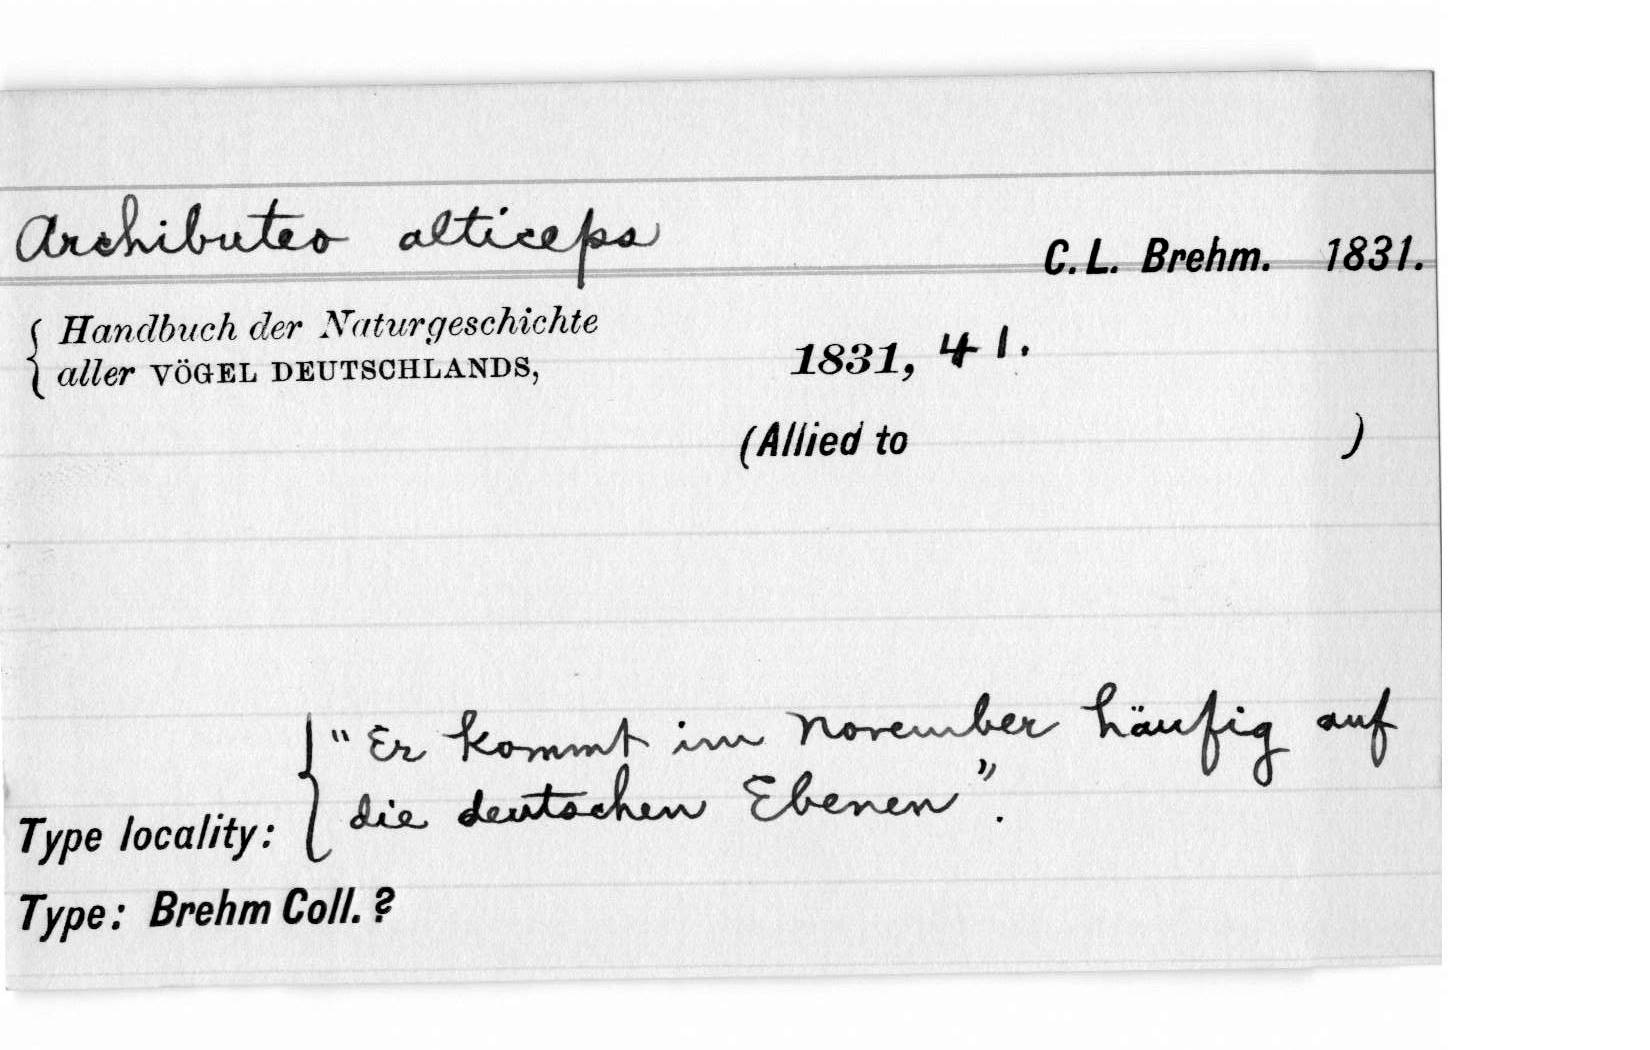 Archibuteo alticeps C. L. Brehm. 1831.
Handbuch der Naturgeschichte
aller VÖGEL DEUTSCHLANDS, 1831, 41.
(Allied to )
"Er kommt im November häufig auf
die deutschen Ebenen".
Type locality:
Type: Brehm Coll. ?